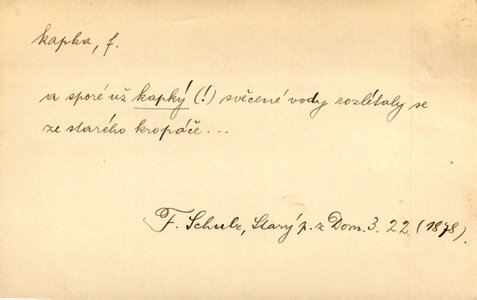 kapka, f.
a sporé už kapký (!) svěcené vody rozlétaly se
ze starého kropáče...
F. Schulz, Starý p. z Dom. 3. 22. (1878).